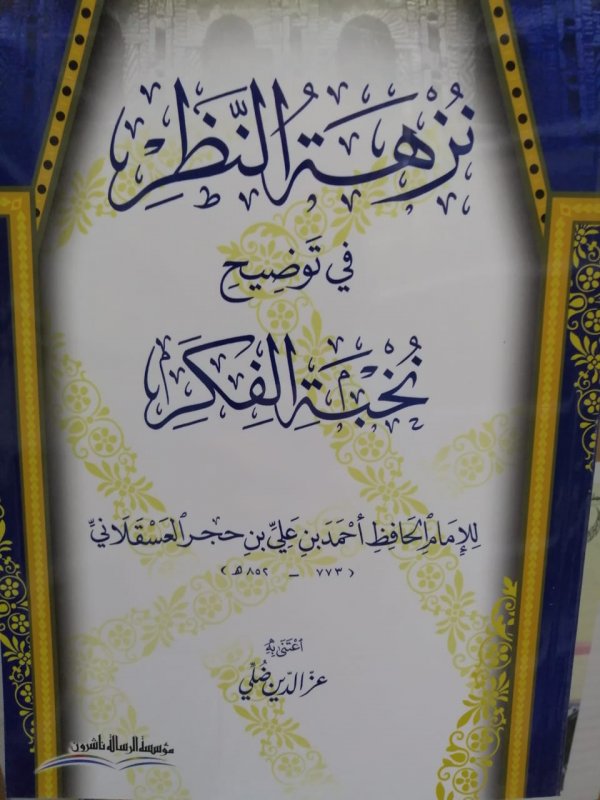 نُزْهَةُ النَّظَرِ
في تَوضِيحِ
نُخْبَةِ الفِكَرِ
لِلإِمَامِ الحَافِظِ أَحْمَدَ بنِ عَلِيِّ بنِ حجر العَسْقَلَانيِّ
(٧٧٣ - ٨٥٢ هـ)
اعْتَنَى بِهِ
عزّ الدّين ضُلِّي
مؤسسة الرسالة ناشرون